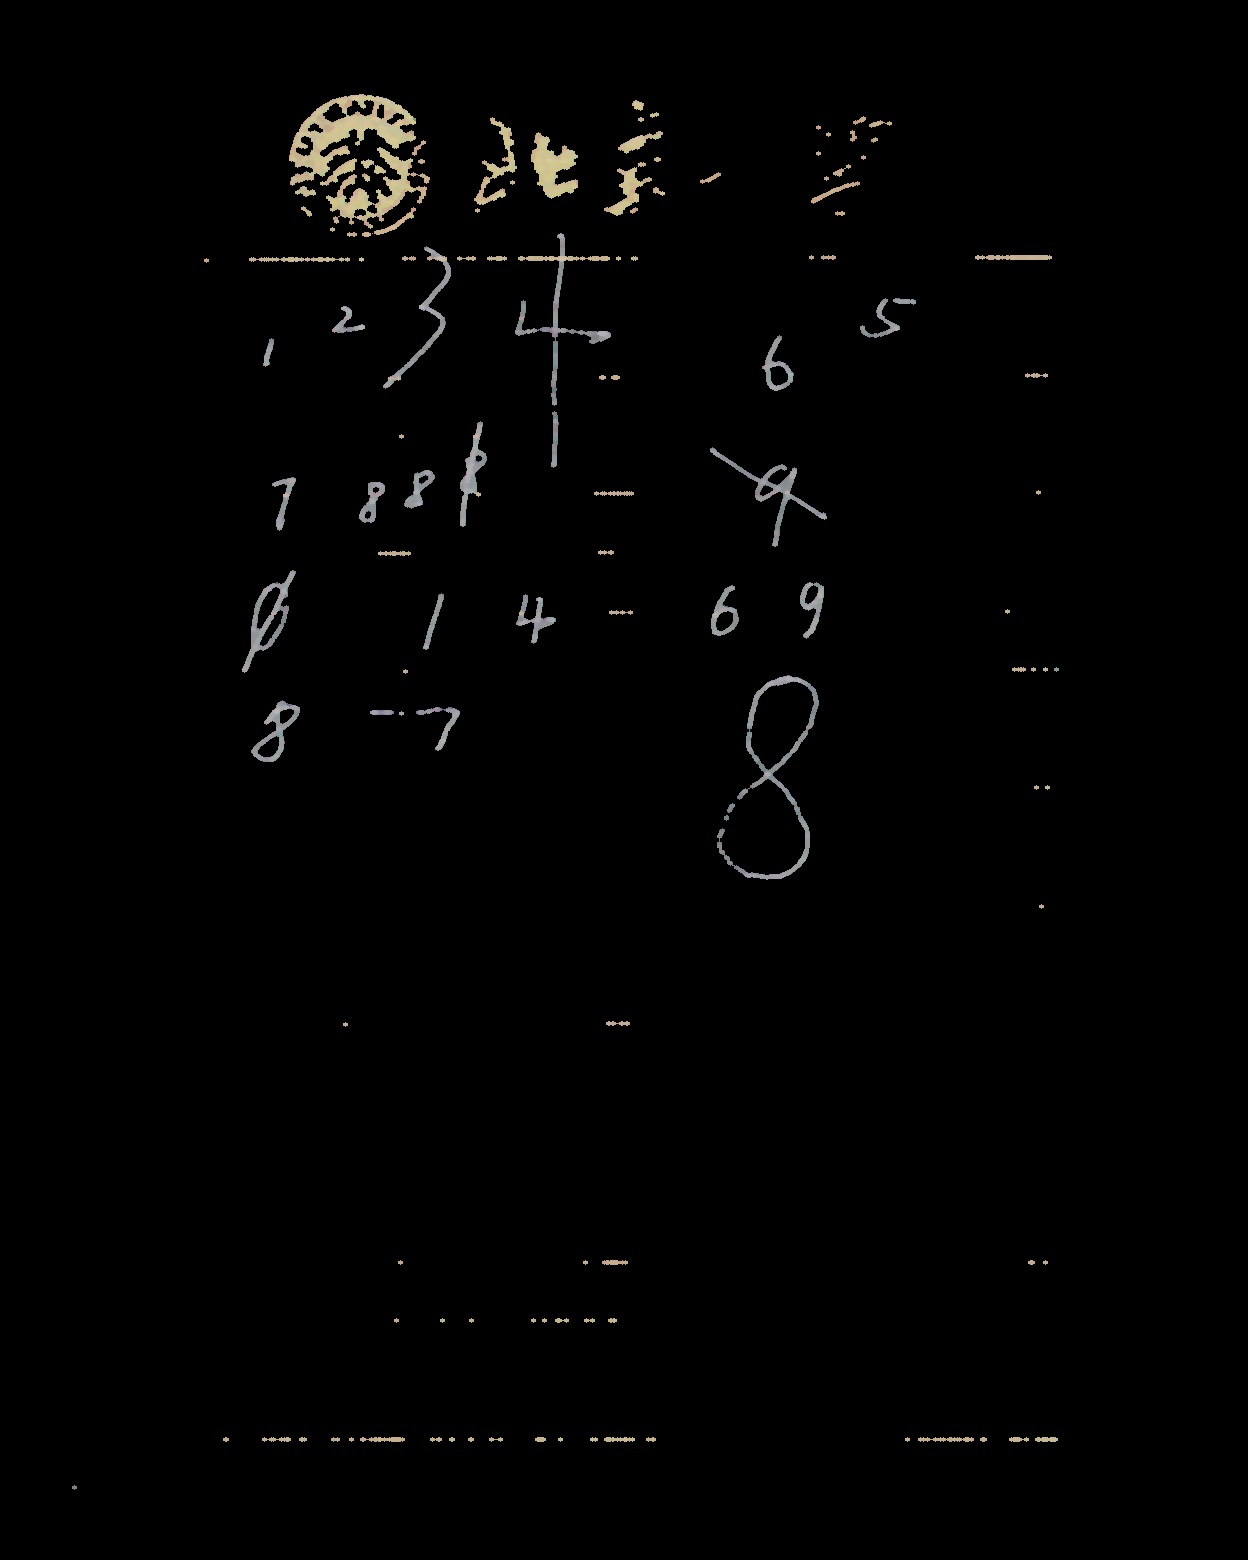 北京
1 2 3 4 6 5
7 8 8 8 9
0 1 4 6 9
8 - 7 8